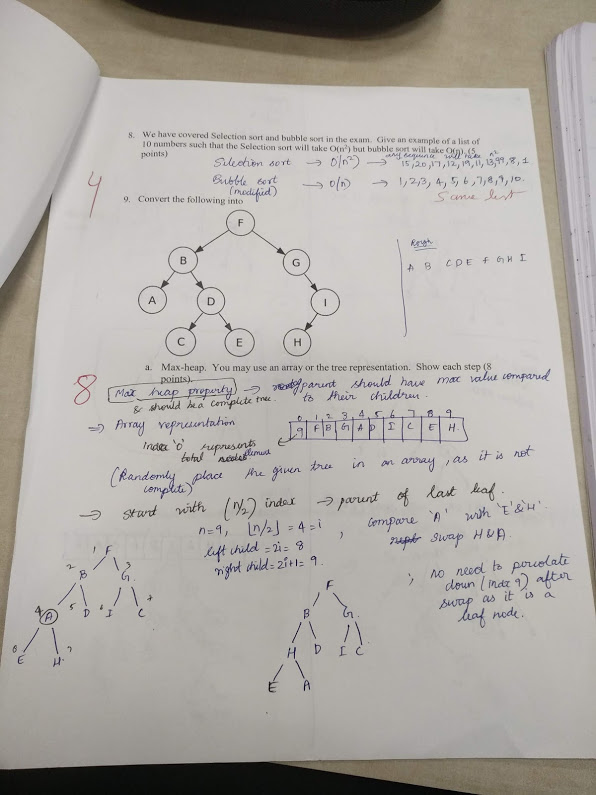 8. We have covered Selection sort and bubble sort in the exam. Give an example of a list of
10 numbers such that the Selection sort will take O(n²) but bubble sort will take O(n). (5
points)
any sequence will take n²
Selection sort → O(n²) → 15,20,17,12,19,11,13,99,8,1
Bubble sort → O(n) → 1,2,3,4,5,6,7,8,9,10.
(modified)
Same list
4
9. Convert the following into
F
B G
A D I
C E H
Rough
A B C D E F G H I
a. Max-heap. You may use an array or the tree representation. Show each step (8
points).
8
Max heap property → parent should have max value compared
& should be a complete tree. to their children.
⇒ Array representation
0 1 2 3 4 5 6 7 8 9
9 F B G A D I C E H
Index '0' represents
total elements
(Randomly place the given tree in an array, as it is not
complete)
→ start with (n/2) index → parent of last leaf.
n=9, ⌊n/2⌋ = 4 = i , compare 'A' with 'E' & 'H'.
left child = 2i = 8 swap H & A.
right child = 2i+1 = 9.
; no need to percolate
down (index 9) after
swap as it is a
leaf node.
1 F
2 B G 3
4 A 5 D 6 I C 7
8 E H 9
F
B G
H D I C
E A